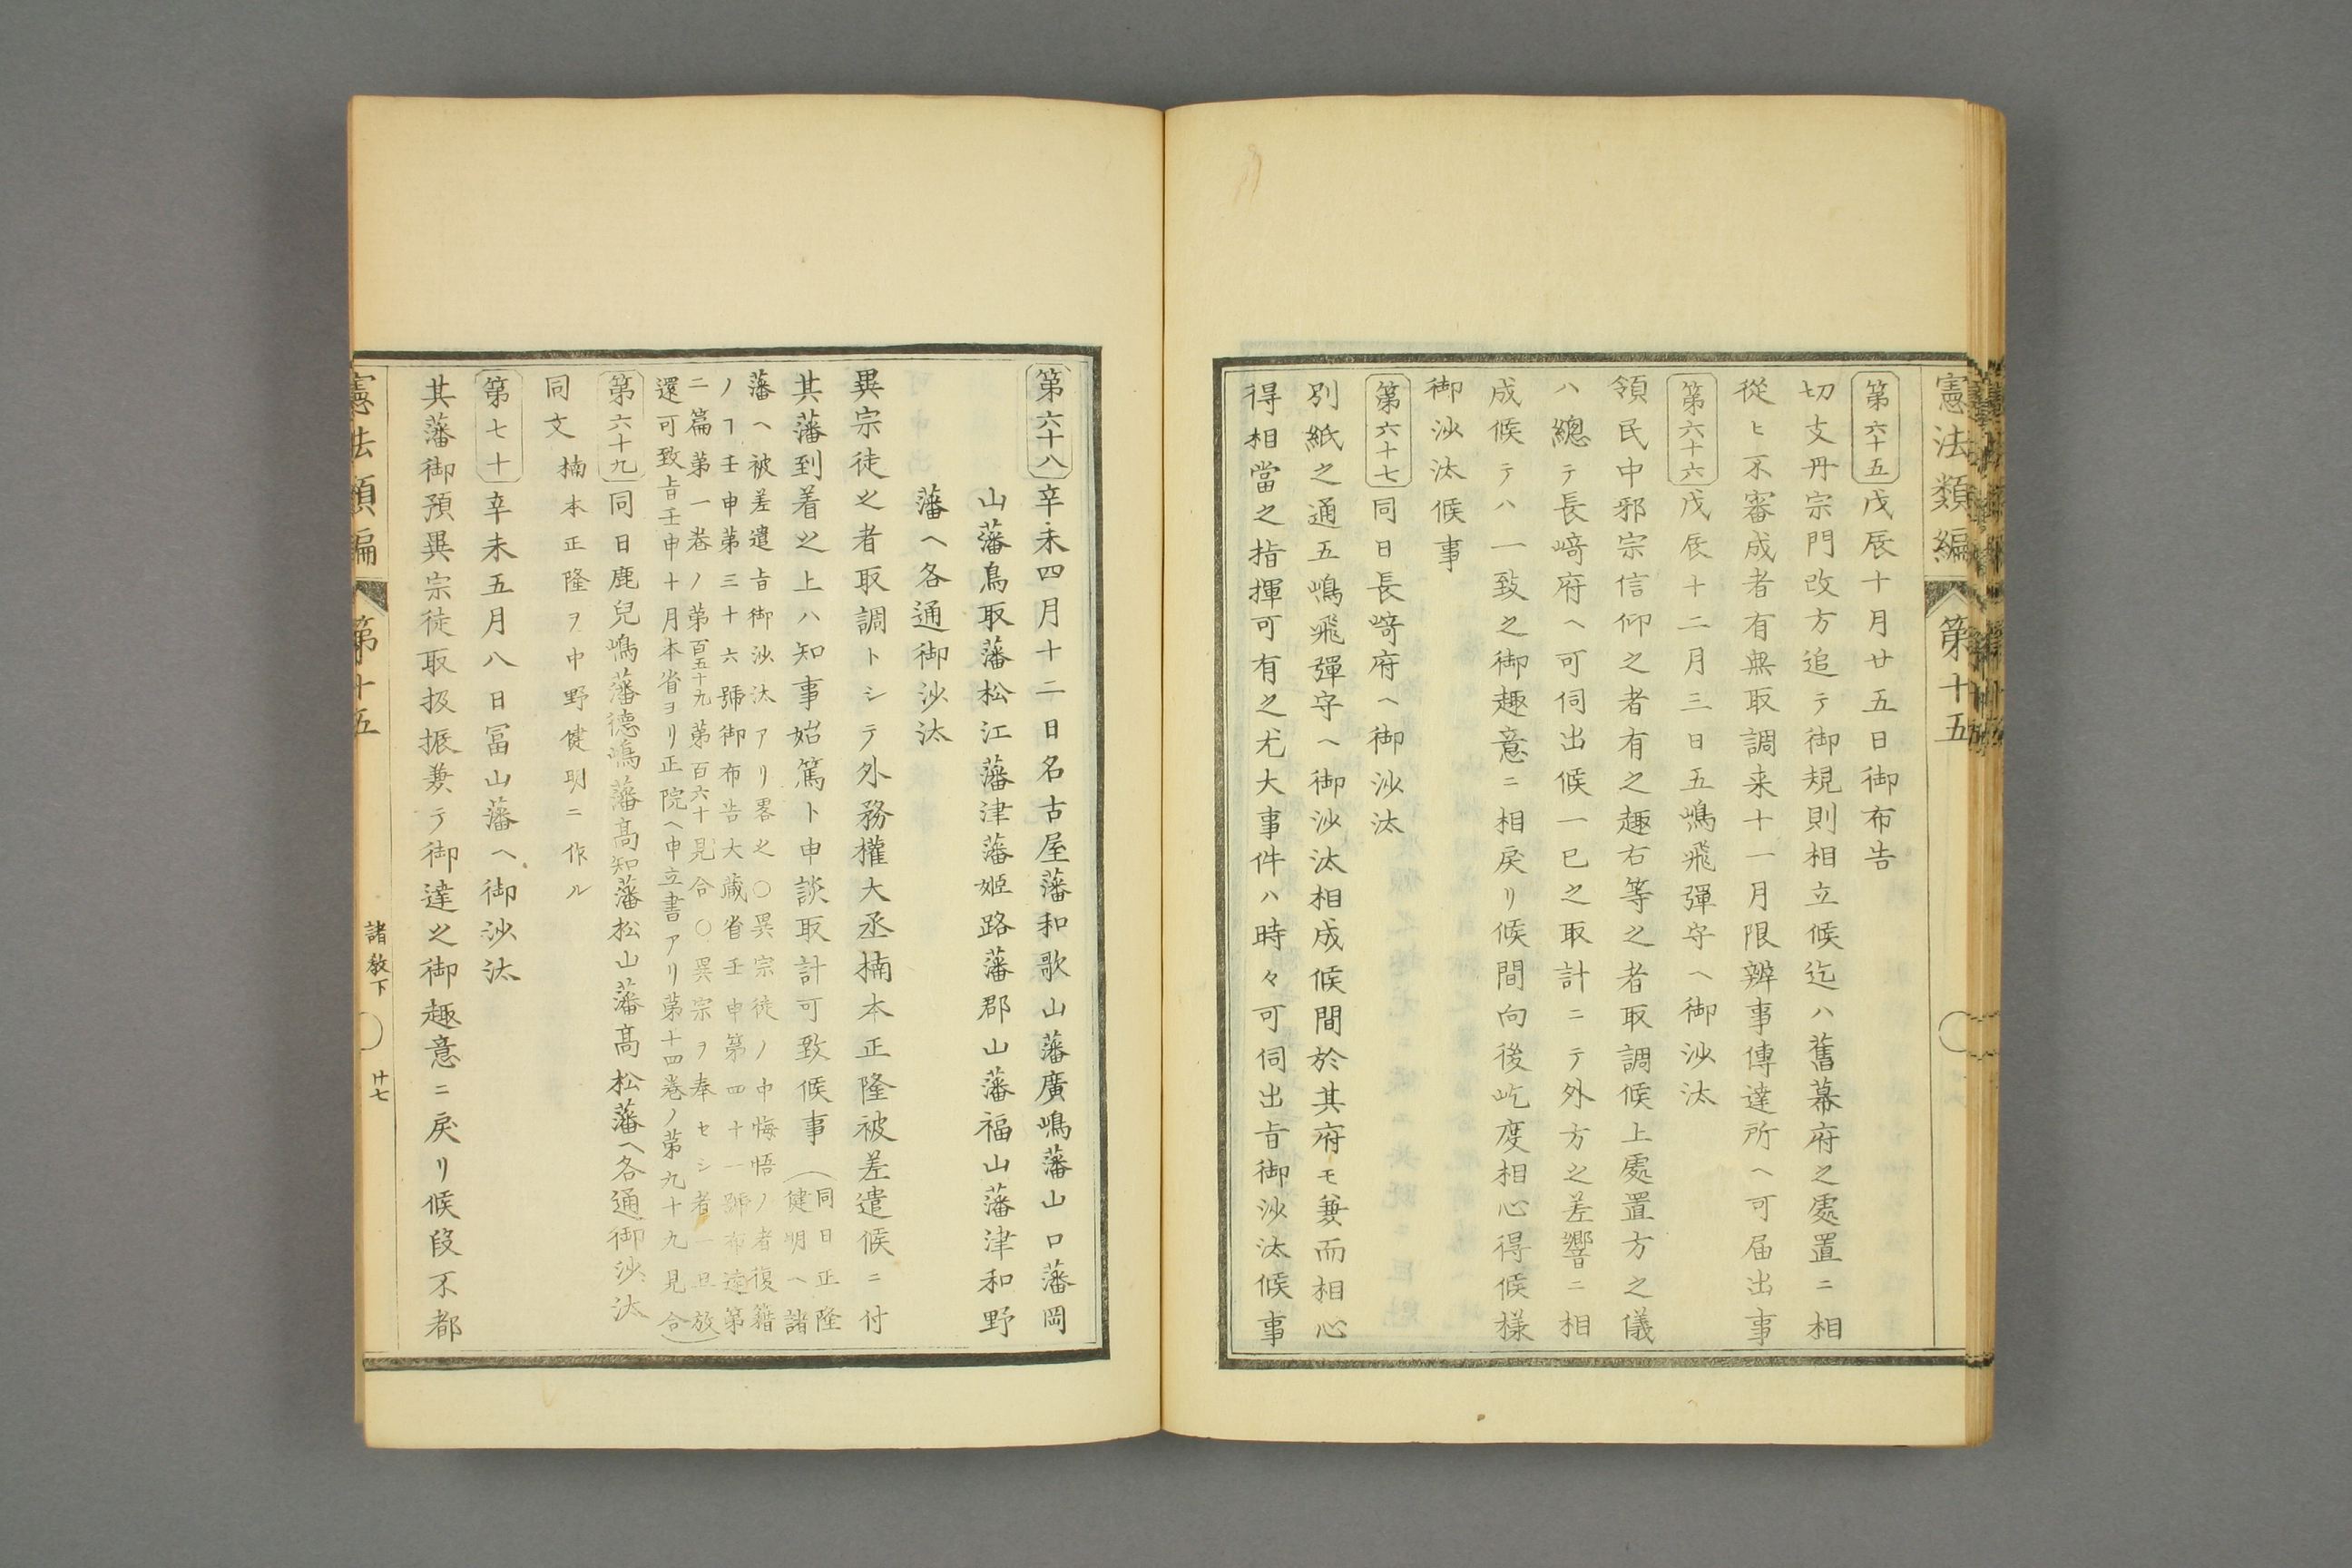 憲法類編　第十五
第六十五　戊辰十月廿五日御布告
切支丹宗門改方追テ御規則相立候迄ハ舊幕府之處置ニ相
從ヒ不審成者有無取調来十一月限辨事傳達所ヘ可届出事
第六十六　戊辰十二月三日五嶋飛彈守ヘ御沙汰
領民中邪宗信仰之者有之趣右等之者取調候上處置方之儀
ハ總テ長﨑府ヘ可伺出候一已之取計ニテ外方之差響ニ相
成候テハ一致之御趣意ニ相戻リ候間向後屹度相心得候様
御沙汰候事
第六十七　同日長﨑府ヘ御沙汰
別紙之通五嶋飛彈守ヘ御沙汰相成候間於其府モ兼而相心
得相當之指揮可有之尤大事件ハ時々可伺出旨御沙汰候事
第六十八　辛未四月十二日名古屋藩和歌山藩廣嶋藩山口藩岡
山藩鳥取藩松江藩津藩姫路藩郡山藩福山藩津和野
藩ヘ各通御沙汰
異宗徒之者取調トシテ外務權大丞楠本正隆被差遣候ニ付
其藩到着之上ハ知事始篤ト申談取計可致候事
（同日正隆
健明ヘ諸
藩ヘ被差遣旨御沙汰アリ畧之〇異宗徒ノ中悔悟ノ者復籍
ノヿ壬申第三十六號御布告大蔵省壬申第四十一號布達第
二篇第一巻ノ第百五十九第百六十見合〇異宗ヲ奉セシ者一旦放
還可致旨壬申十月本省ヨリ正院ヘ申立書アリ第十四巻ノ第九十九見合）
第六十九　同日鹿兒嶋藩德嶋藩髙知藩松山藩髙松藩ヘ各通御沙汰
同文　楠本正隆ヲ中野健明ニ作ル
第七十　辛未五月八日冨山藩ヘ御沙汰
其藩御預異宗徒取扱振兼テ御達之御趣意ニ戻リ候段不都
憲法類編　第十五　諸教下　〇　廿七